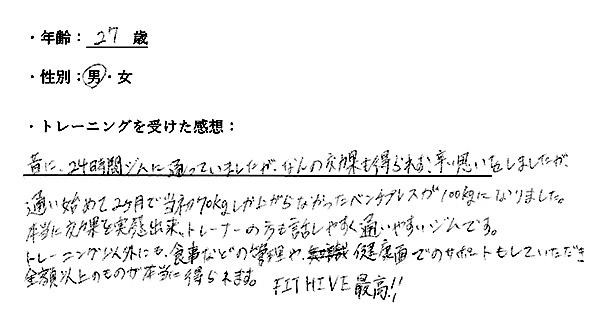 ・年齢：27 歳
・性別：男・女
・トレーニングを受けた感想：
昔に、24時間ジムに通っていましたが、なんの効果も得られず、辛い思いをしましたが、
通い始めて2ヶ月で当初70kgしか上がらなかったベンチプレスが100kgになりました。
本当に効果を実感出来、トレーナーの方も話しやすく通いやすいジムです。
トレーニング以外にも、食事などの管理や、健康面でのサポートもしていただき
金額以上のものが本当に得られます。 FIT HIVE 最高!!